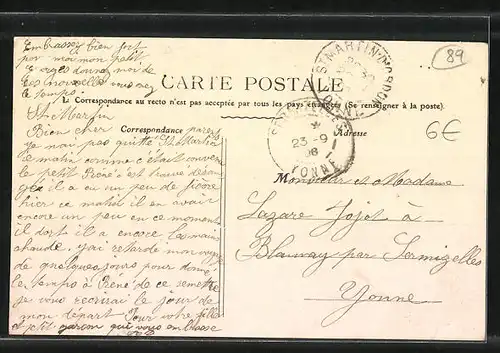 Embrassez bien fort
pour moi mon petit
Georges donnez moi de
ses nouvelles vous avez
le temps.
CARTE POSTALE
La Correspondance au recto n'est pas acceptée par tous les pays étrangers (Se renseigner à la poste).
Correspondance
Adresse
89
6€
St Martin
Bien cher parents
je n'ai pas quitté St Martin
le matin comme c'était convenu
le petit René s'est trouvé déran
gé il a eu un peu de fièvre
hier ce matin il en avait
encore un peu en ce moment
il dort il a encore les mains
chaudes j'ai retardé mon voyage
de quelques jours pour donné
le temps à René de se remettre
je vous recrirai le jour de
mon départ Votre fille
et petit garçon qui vous embrasse
ST MARTIN
23-9
08
YONNE
Monsieur et Madame
Lazare Jojot à
Blannay par Sermizelles
Yonne